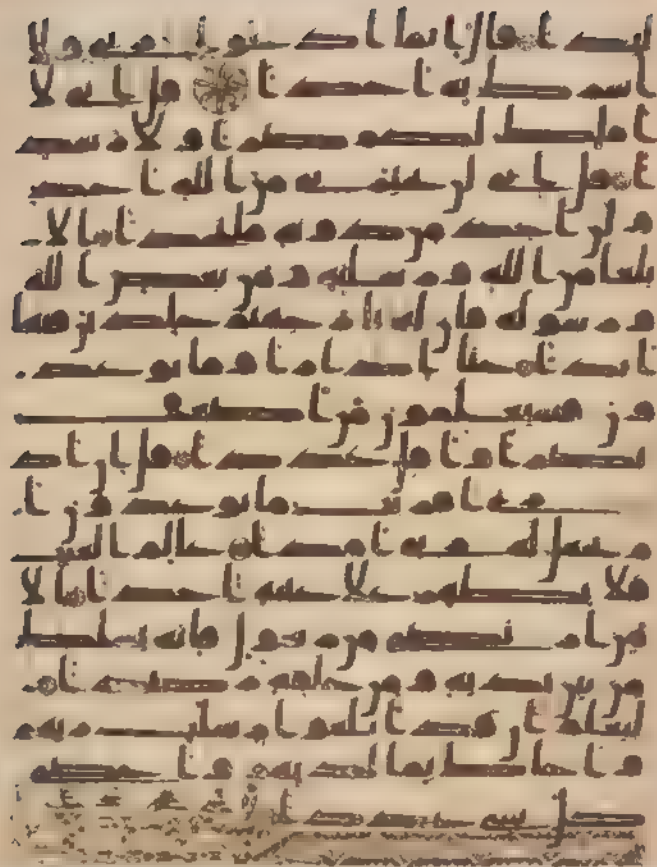 لبدا قل انما ادعوا ربي ولا
اشرك به احدا قل اني لا
املك لكم ضرا ولا رشد
ا قل اني لن يجيرني من الله احد
ولن اجد من دونه ملتحدا الا
بلغا من الله ورسلته ومن يعص الله
ورسوله فان له نار جهنم خلدين فيها
ابدا حتى اذا راوا ما يوعد
ون فسيعلمون من اضعف
ناصرا واقل عددا قل ان اد
ري اقريب ما توعدون ا
م يجعل له ربي امدا علم الغيب
فلا يظهر على غيبه احدا الا
من ارتضى من رسول فانه يسلك
من بين يديه ومن خلفه رصدا
ليعلم ان قد ابلغوا رسلت ربهم
واحاط بما لديهم واحصى
كل شي عددا